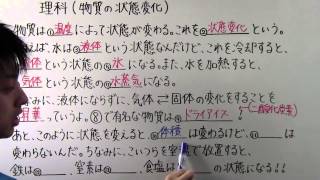 理科(物質の状態変化)
物質は①温度によって状態が変わる。これを②状態変化という。
えば、水は③液体という状態なんだけど、これを冷やすと、
体という状態の⑤水になる。また、水を加熱すると、
気体という状態の⑦水蒸気になる。
みに、液体にならずに、気体⇄固体の変化をすることを
昇華っていうよ。⑧で有名な物質は⑨ドライアイス!(二酸化炭素)
あと、このように状態を変えると、⑩体積は変わるけど、⑪は
変わらないんだ。ちなみに、こいつらを空で放置すると、
鉄は、窒素は、食塩はの状態になる!!